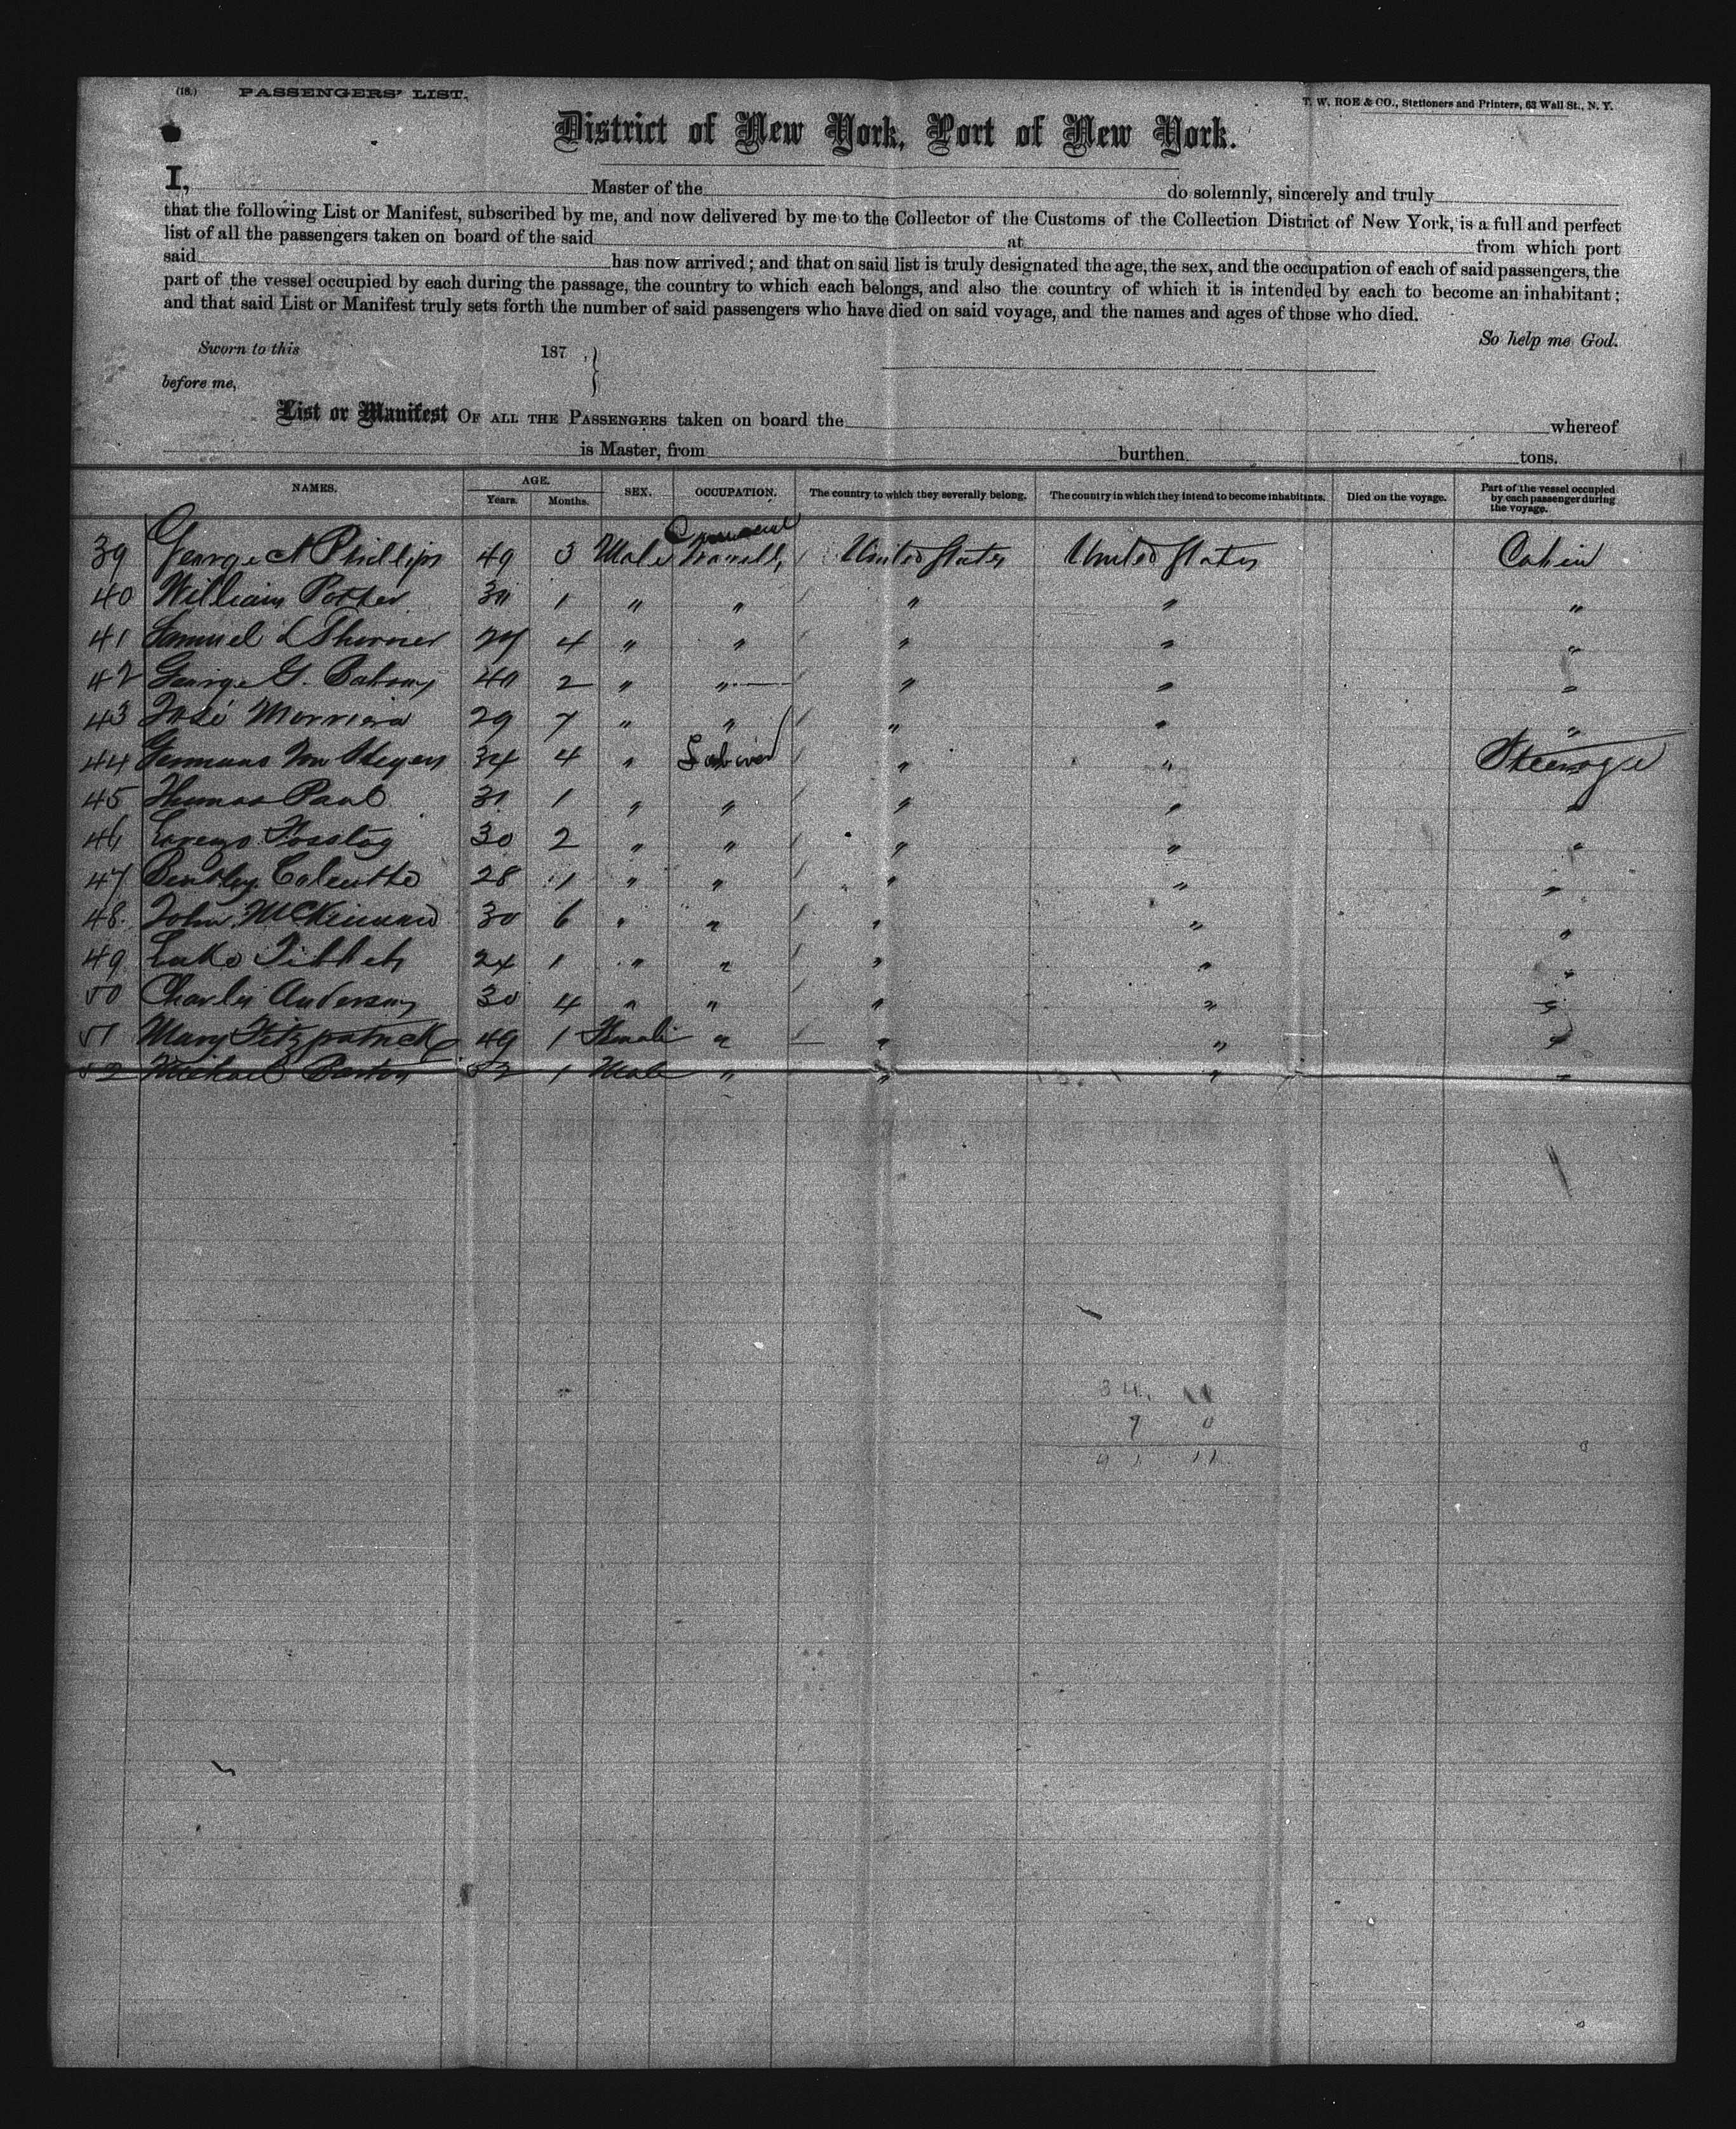 (18.) PASSENGERS' LIST.
T. W. ROE & CO., Stationers and Printers, 63 Wall St., N. Y.
District of New York, Port of New York.
I, Master of the do solemnly, sincerely and truly
that the following List or Manifest, subscribed by me, and now delivered by me to the Collector of the Customs of the Collection District of New York, is a full and perfect
list of all the passengers taken on board of the said at from which port
said has now arrived; and that on said list is truly designated the age, the sex, and the occupation of each of said passengers, the
part of the vessel occupied by each during the passage, the country to which each belongs, and also the country of which it is intended by each to become an inhabitant;
and that said List or Manifest truly sets forth the number of said passengers who have died on said voyage, and the names and ages of those who died.
So help me God.
Sworn to this 187 ,
before me,
List or Manifest OF ALL THE PASSENGERS taken on board the whereof
is Master, from burthen tons.
NAMES. AGE. Years. Months. SEX. OCCUPATION. The country to which they severally belong. The country in which they intend to become inhabitants. Died on the voyage. Part of the vessel occupied by each passenger during the voyage.
39 George A Phillips 49 3 Male United States United States Cabin
40 William Potter 1 " " " " "
41 Samuel L 4 " " " " "
42 George G. 2 " " " " "
43 José 29 7 " " " " "
44 34 4 " " " Steerage
45 Thomas Paul 31 1 " " " " "
46 30 2 " " " " "
47 Bentley 28 1 " " " " "
48 John 30 6 " " " " "
49 24 1 " " " " "
50 Charles Anderson 30 4 " " " " "
51 Mary Fitzpatrick 49 1 Female " " " "
52 Michael Barton 52 1 Male " " " "